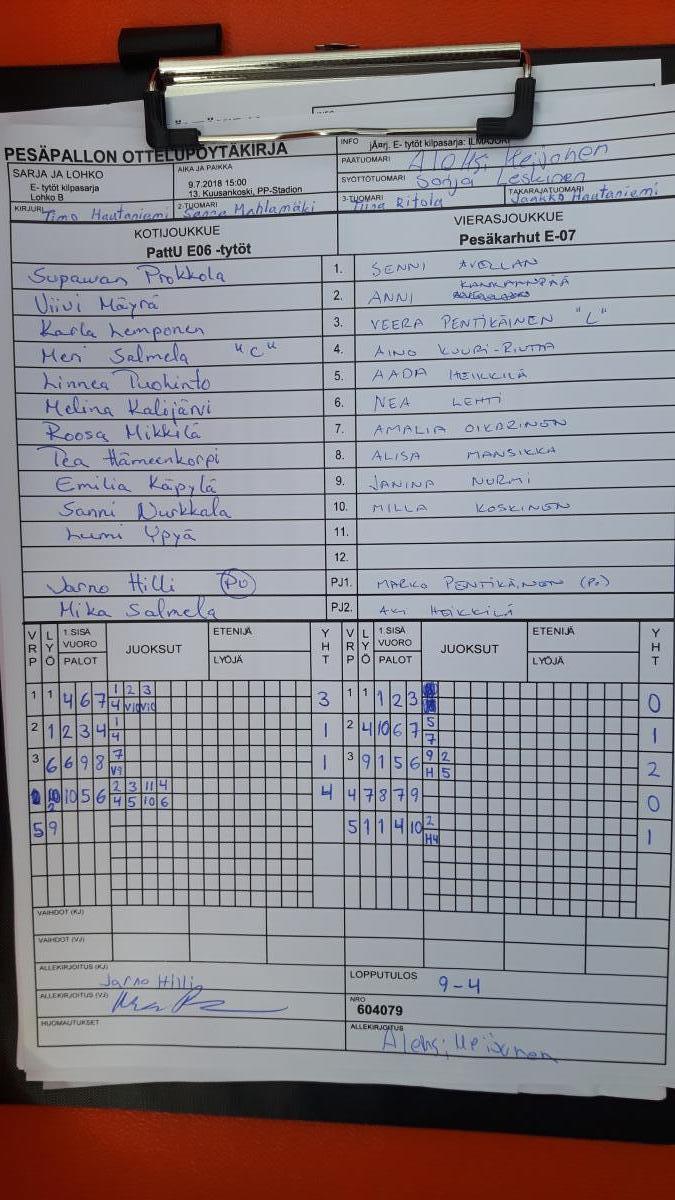 PESÄPALLON OTTELUPÖYTÄKIRJA
INFO jÄarj. E- tytöt kilpasarja: ILMAJOKI
PÄÄTUOMARI Aleksi Heijonen
SARJA JA LOHKO
E- tytöt kilpasarja
Lohko B
AIKA JA PAIKKA
9.7.2018 15:00
13. Kuusankoski, PP-Stadion
SYÖTTÖTUOMARI Sonja Leskinen
KIRJURI Timo Hautaniemi
2-TUOMARI Sanna Mahlamäki
3-TUOMARI Tiina Ritola
TAKARAJATUOMARI Jaakko Hautaniemi
KOTIJOUKKUE
PattU E06 -tytöt
VIERASJOUKKUE
Pesäkarhut E-07
Supawan Prokkola 1. SENNI AVELLAN
Viivi Mäyrä 2. ANNI KANKAANPÄÄ
Karla Lemponen 3. VEERA PENTIKÄINEN "L"
Meri Salmela "C" 4. AINO KUURI-RIUTTA
Linnea Puohinto 5. AADA HEIKKILÄ
Melina Kalijärvi 6. NEA LEHTI
Roosa Mikkilä 7. AMALIA OIKARINEN
Tea Hämeenkorpi 8. ALISA MANSIKKA
Emilia Käpylä 9. JANINA NURMI
Sanni Nurkkala 10. MILLA KOSKINEN
Lumi Ypyä 11.
12.
Jarno Hilli (PU) PJ1. MARKO PENTIKÄINEN (PU)
Mika Salmela PJ2. AKI HEIKKILÄ
VRP LYÖ 1.SISÄ VUORO PALOT JUOKSUT ETENIJÄ LYÖJÄ YHT VRP LYÖ 1.SISÄ VUORO PALOT JUOKSUT ETENIJÄ LYÖJÄ YHT
1 1 4 6 7 1 2 3 3 1 1 1 2 3 0
4 V10 V10
2 1 2 3 4 1 1 2 4 10 6 7 5 1
4 7
3 6 6 9 8 7 1 3 9 1 5 6 9 2 2
V9 H 5
10 5 6 2 3 11 4 4 4 7 8 7 9 0
2 4 5 10 6
5 9 5 1 1 4 10 2 1
H4
VAIHDOT (KJ)
VAIHDOT (VJ)
ALLEKIRJOITUS (KJ) Jarno Hilli
LOPPUTULOS 9-4
ALLEKIRJOITUS (VJ)
NRO
604079
HUOMAUTUKSET
ALLEKIRJOITUS
Aleksi Heijonen